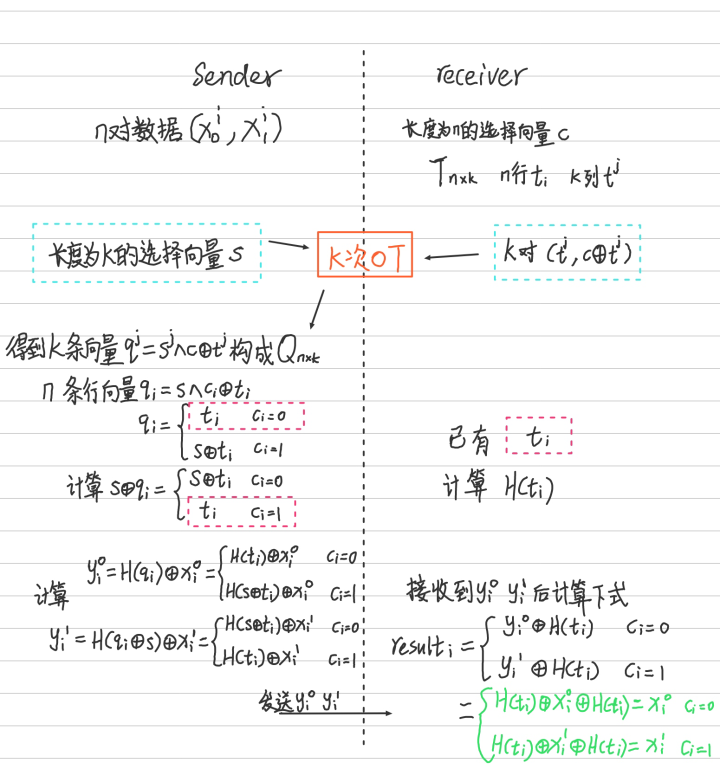 Sender
receiver
n对数据 (x₀ⁱ, x₁ⁱ)
长度为n的选择向量 c
Tₙₓₖ n行 tᵢ k列 tʲ
长度为k的选择向量 s
k次OT
k对 (tʲ, c⊕tʲ)
得到k条向量 qʲ=sʲ∧c⊕tʲ 构成 Qₙₓₖ
n 条行向量 qᵢ=s∧cᵢ⊕tᵢ
qᵢ= { tᵢ cᵢ=0
s⊕tᵢ cᵢ=1
已有 tᵢ
计算 s⊕qᵢ= { s⊕tᵢ cᵢ=0
tᵢ cᵢ=1
计算 H(tᵢ)
计算
yᵢ⁰=H(qᵢ)⊕xᵢ⁰= { H(tᵢ)⊕xᵢ⁰ cᵢ=0
H(s⊕tᵢ)⊕xᵢ⁰ cᵢ=1
yᵢ¹=H(qᵢ⊕s)⊕xᵢ¹= { H(s⊕tᵢ)⊕xᵢ¹ cᵢ=0
H(tᵢ)⊕xᵢ¹ cᵢ=1
发送 yᵢ⁰ yᵢ¹
接收到 yᵢ⁰ yᵢ¹ 后计算下式
resultᵢ= { yᵢ⁰⊕H(tᵢ) cᵢ=0
yᵢ¹⊕H(tᵢ) cᵢ=1
= { H(tᵢ)⊕xᵢ⁰⊕H(tᵢ)=xᵢ⁰ cᵢ=0
H(tᵢ)⊕xᵢ¹⊕H(tᵢ)=xᵢ¹ cᵢ=1